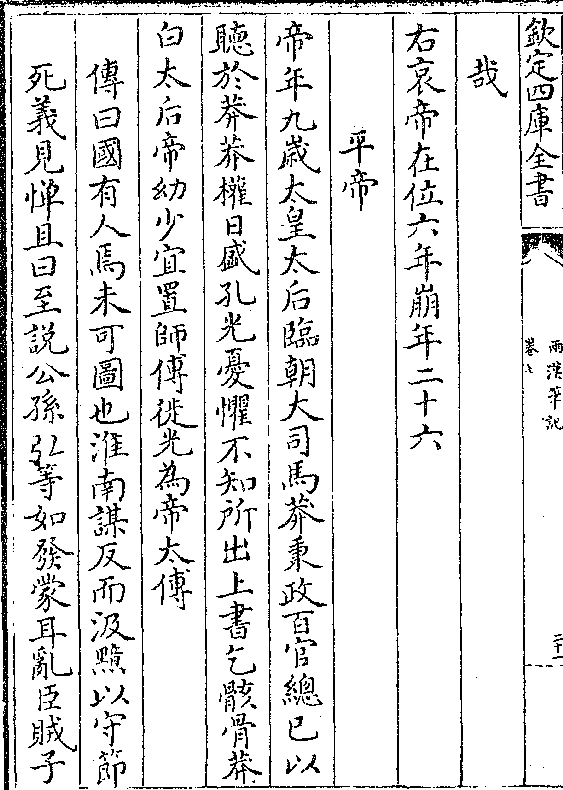 欽定四庫全書
兩漢筆記
卷七
二十一
哉
右哀帝在位六年崩年二十六
平帝
帝年九歲太皇太后臨朝大司馬莽秉政百官總已以
聽於莽莽權日盛孔光憂懼不知所出上書乞骸骨莽
白太后帝幼少宜置師傅徙光為帝太傅
傳曰國有人焉未可圖也淮南謀反而汲黯以守節
死義見憚且曰至説公孫弘等如發蒙耳亂臣賊子